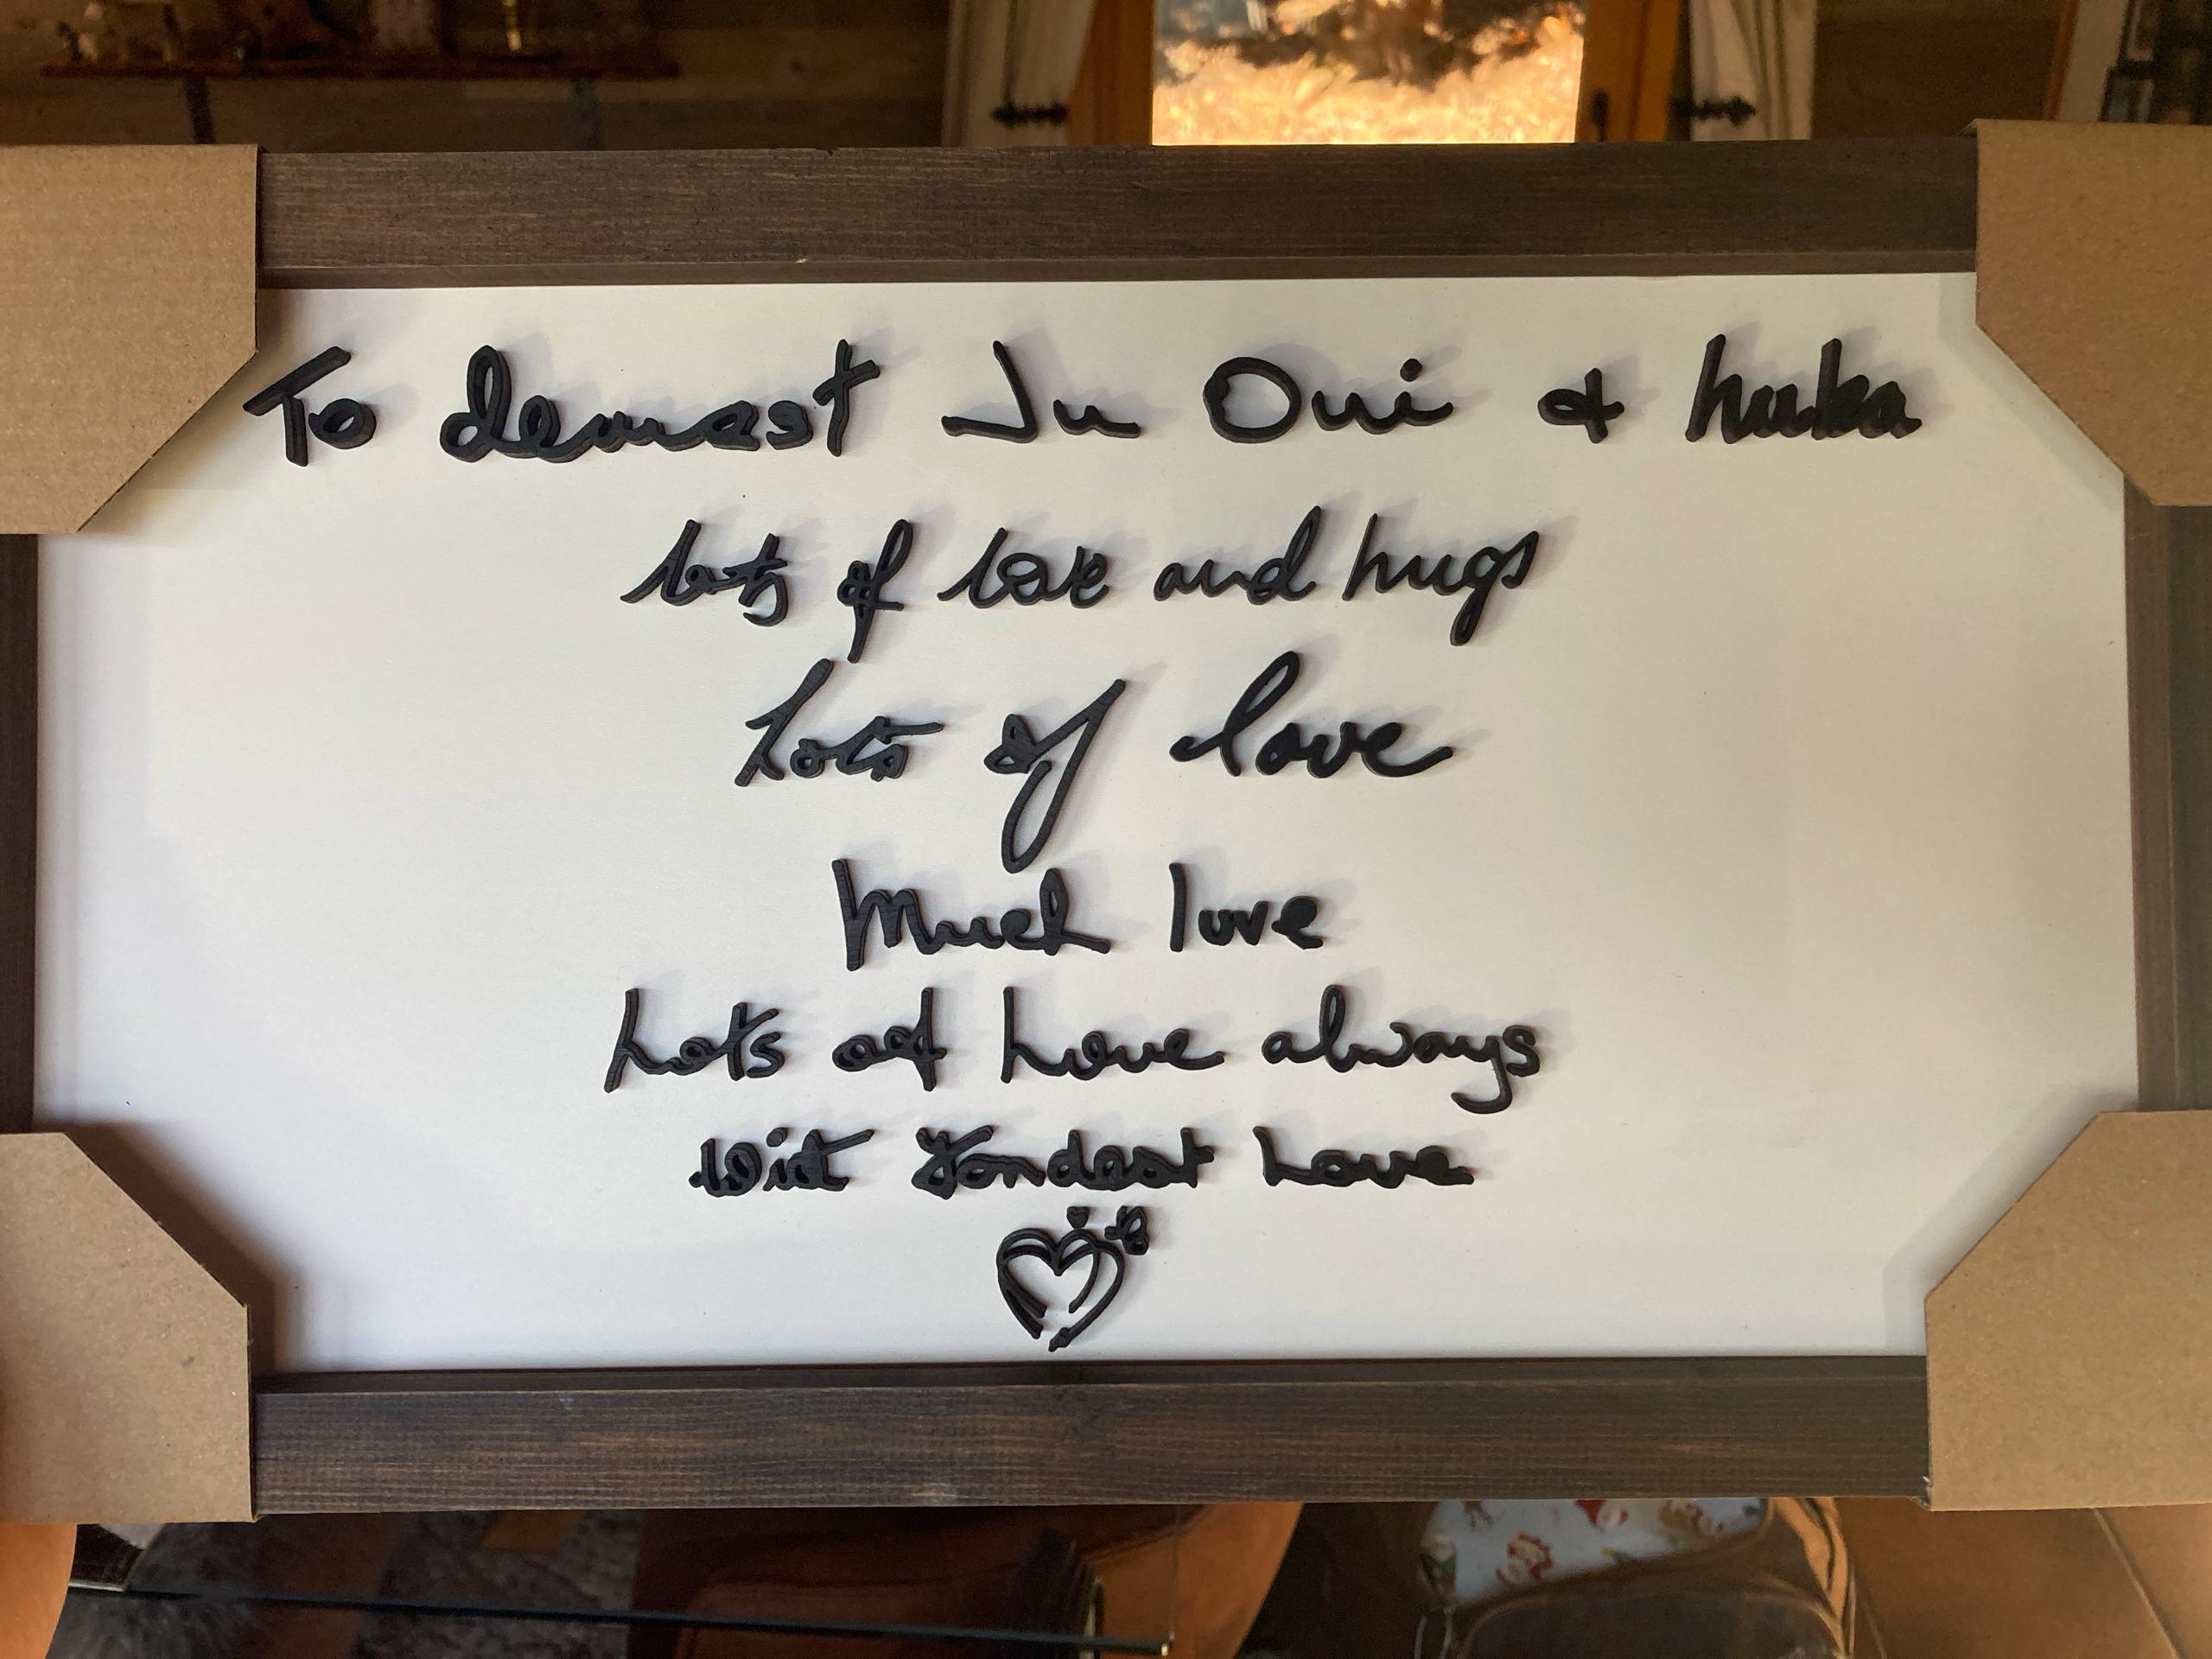 To dearest Ju Oui & Luka
lots of love and hugs
Lots of love
Much love
Lots of Love always
With Fondest Love